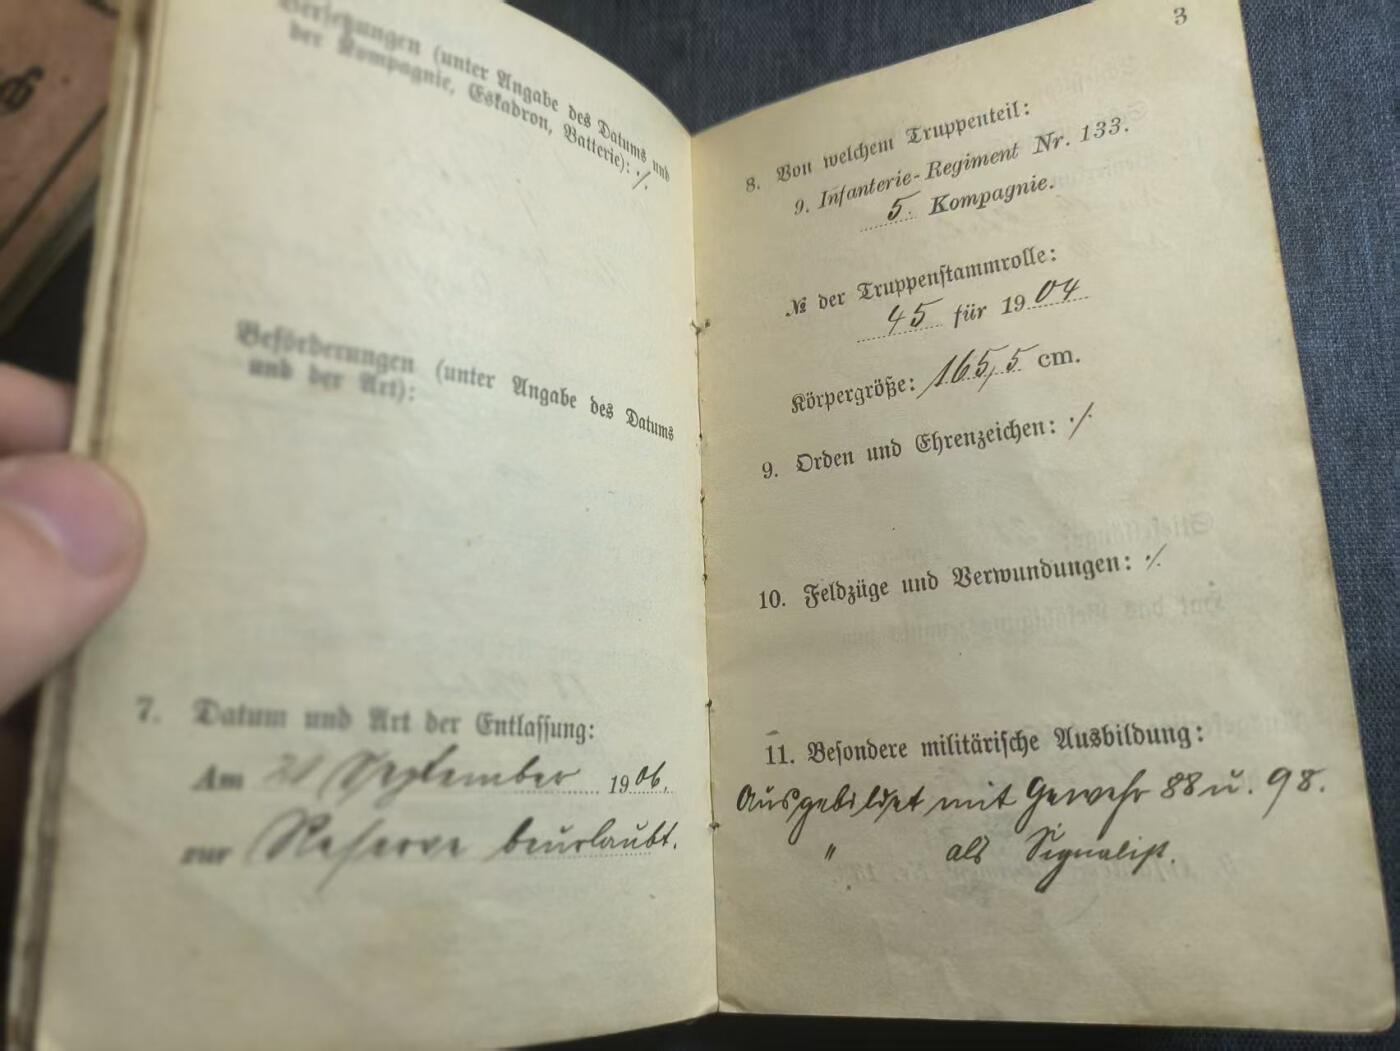 Versetzungen (unter Angabe des Datums und
der Kompagnie, Eskadron, Batterie): ·/.
Beförderungen (unter Angabe des Datums
und der Art):
7. Datum und Art der Entlassung:
Am September 1906.
zur Reserve beurlaubt.
3
8. Von welchem Truppenteil:
9. Infanterie-Regiment Nr. 133.
5. Kompagnie.
№ der Truppenstammrolle:
45 für 1904
Körpergröße: 165,5 cm.
9. Orden und Ehrenzeichen: ·/.
10. Feldzüge und Verwundungen: ·/.
11. Besondere militärische Ausbildung:
Ausgebildet mit Gewehr 88 u. 98.
" als Signalist.